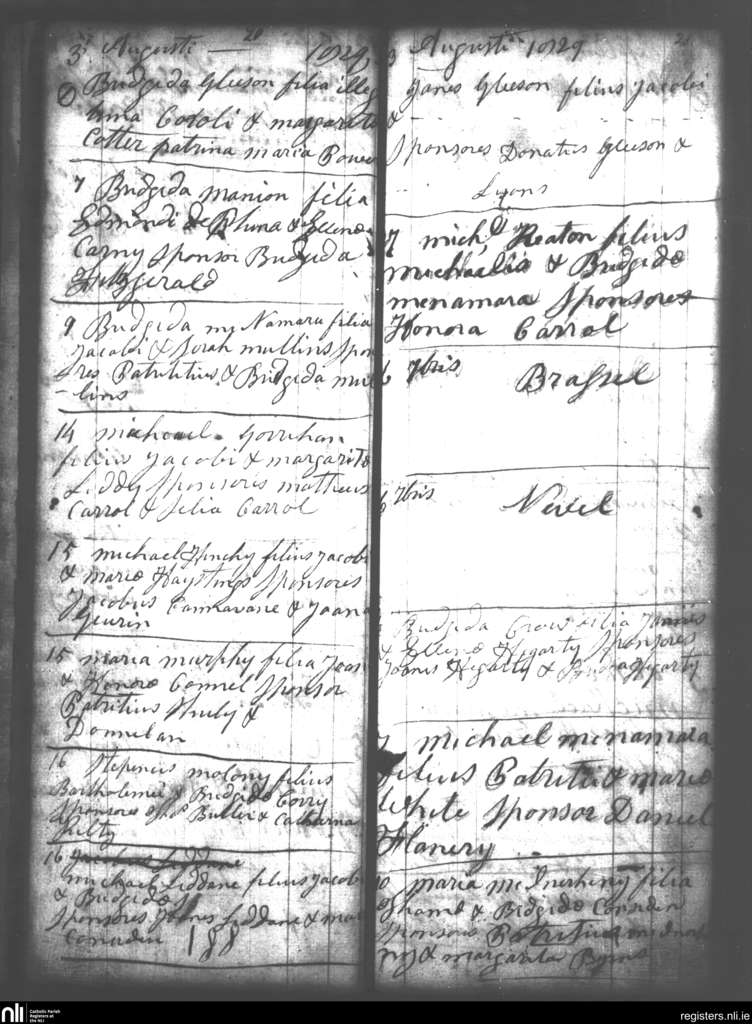 3d Augusti 20 1829
Bridgida Gleeson filia illeg
Cotter patrina maria Power
7 Bridgida Manion filia
Edmondi de Bluna & Ellenæ
Carny Sponsor Bridgida
Fitzgerald
9 Bridgida mc Namara filia
Jacobi & Sarah mullins Spon
res Patrititius & Bridgida mul
-lins
14 michael Gorrihan
filius Jacobi & margarita
Liddy Sponsores matheus
Carrol & Silia Carrol
15 michael Hinchy filius Jacobi
& mariæ Haystings Sponsores
Jacobus Cannavane & Joana
Geurin
15 maria murphy filia Joan
& Honoræ Connel Sponsor
Patritius Shuly &
Donnelan
16 Stepenus molony filius
Bartholemei & Bridgidæ Corry
Sponsores Butler & Catharina
Kilty
16 Jacobus Liddane
michael Liddane filius Jacobi
& Bridgidæ
Sponsores Joanes Liddane & mar
Consedin 188
3 Augusti 1829 21
Janes Gleeson filius Jacobi
&
Sponsores Donatus Gleeson &
Lyons
7 michl Keaton filius
michaelis & Bridgidæ
mcnamara Sponsores
Honora Carrol
6 7bris Brassel
6 7bris Nevel
Bridgida Crow filia Joannis
& Ellenæ Hogarty Sponsores
Joanis Hegarty & Honora Hegarty
7 michael mcnamara
filius Patritii & mariæ
White Sponsor Daniel
Flanery
10 maria mcInerheny filia
Thomæ & Bidgidæ Considin
Sponsores Patritius mcInerh
ny & margarita Byrns
nli
Catholic Parish
Registers at
the NLI
registers.nli.ie